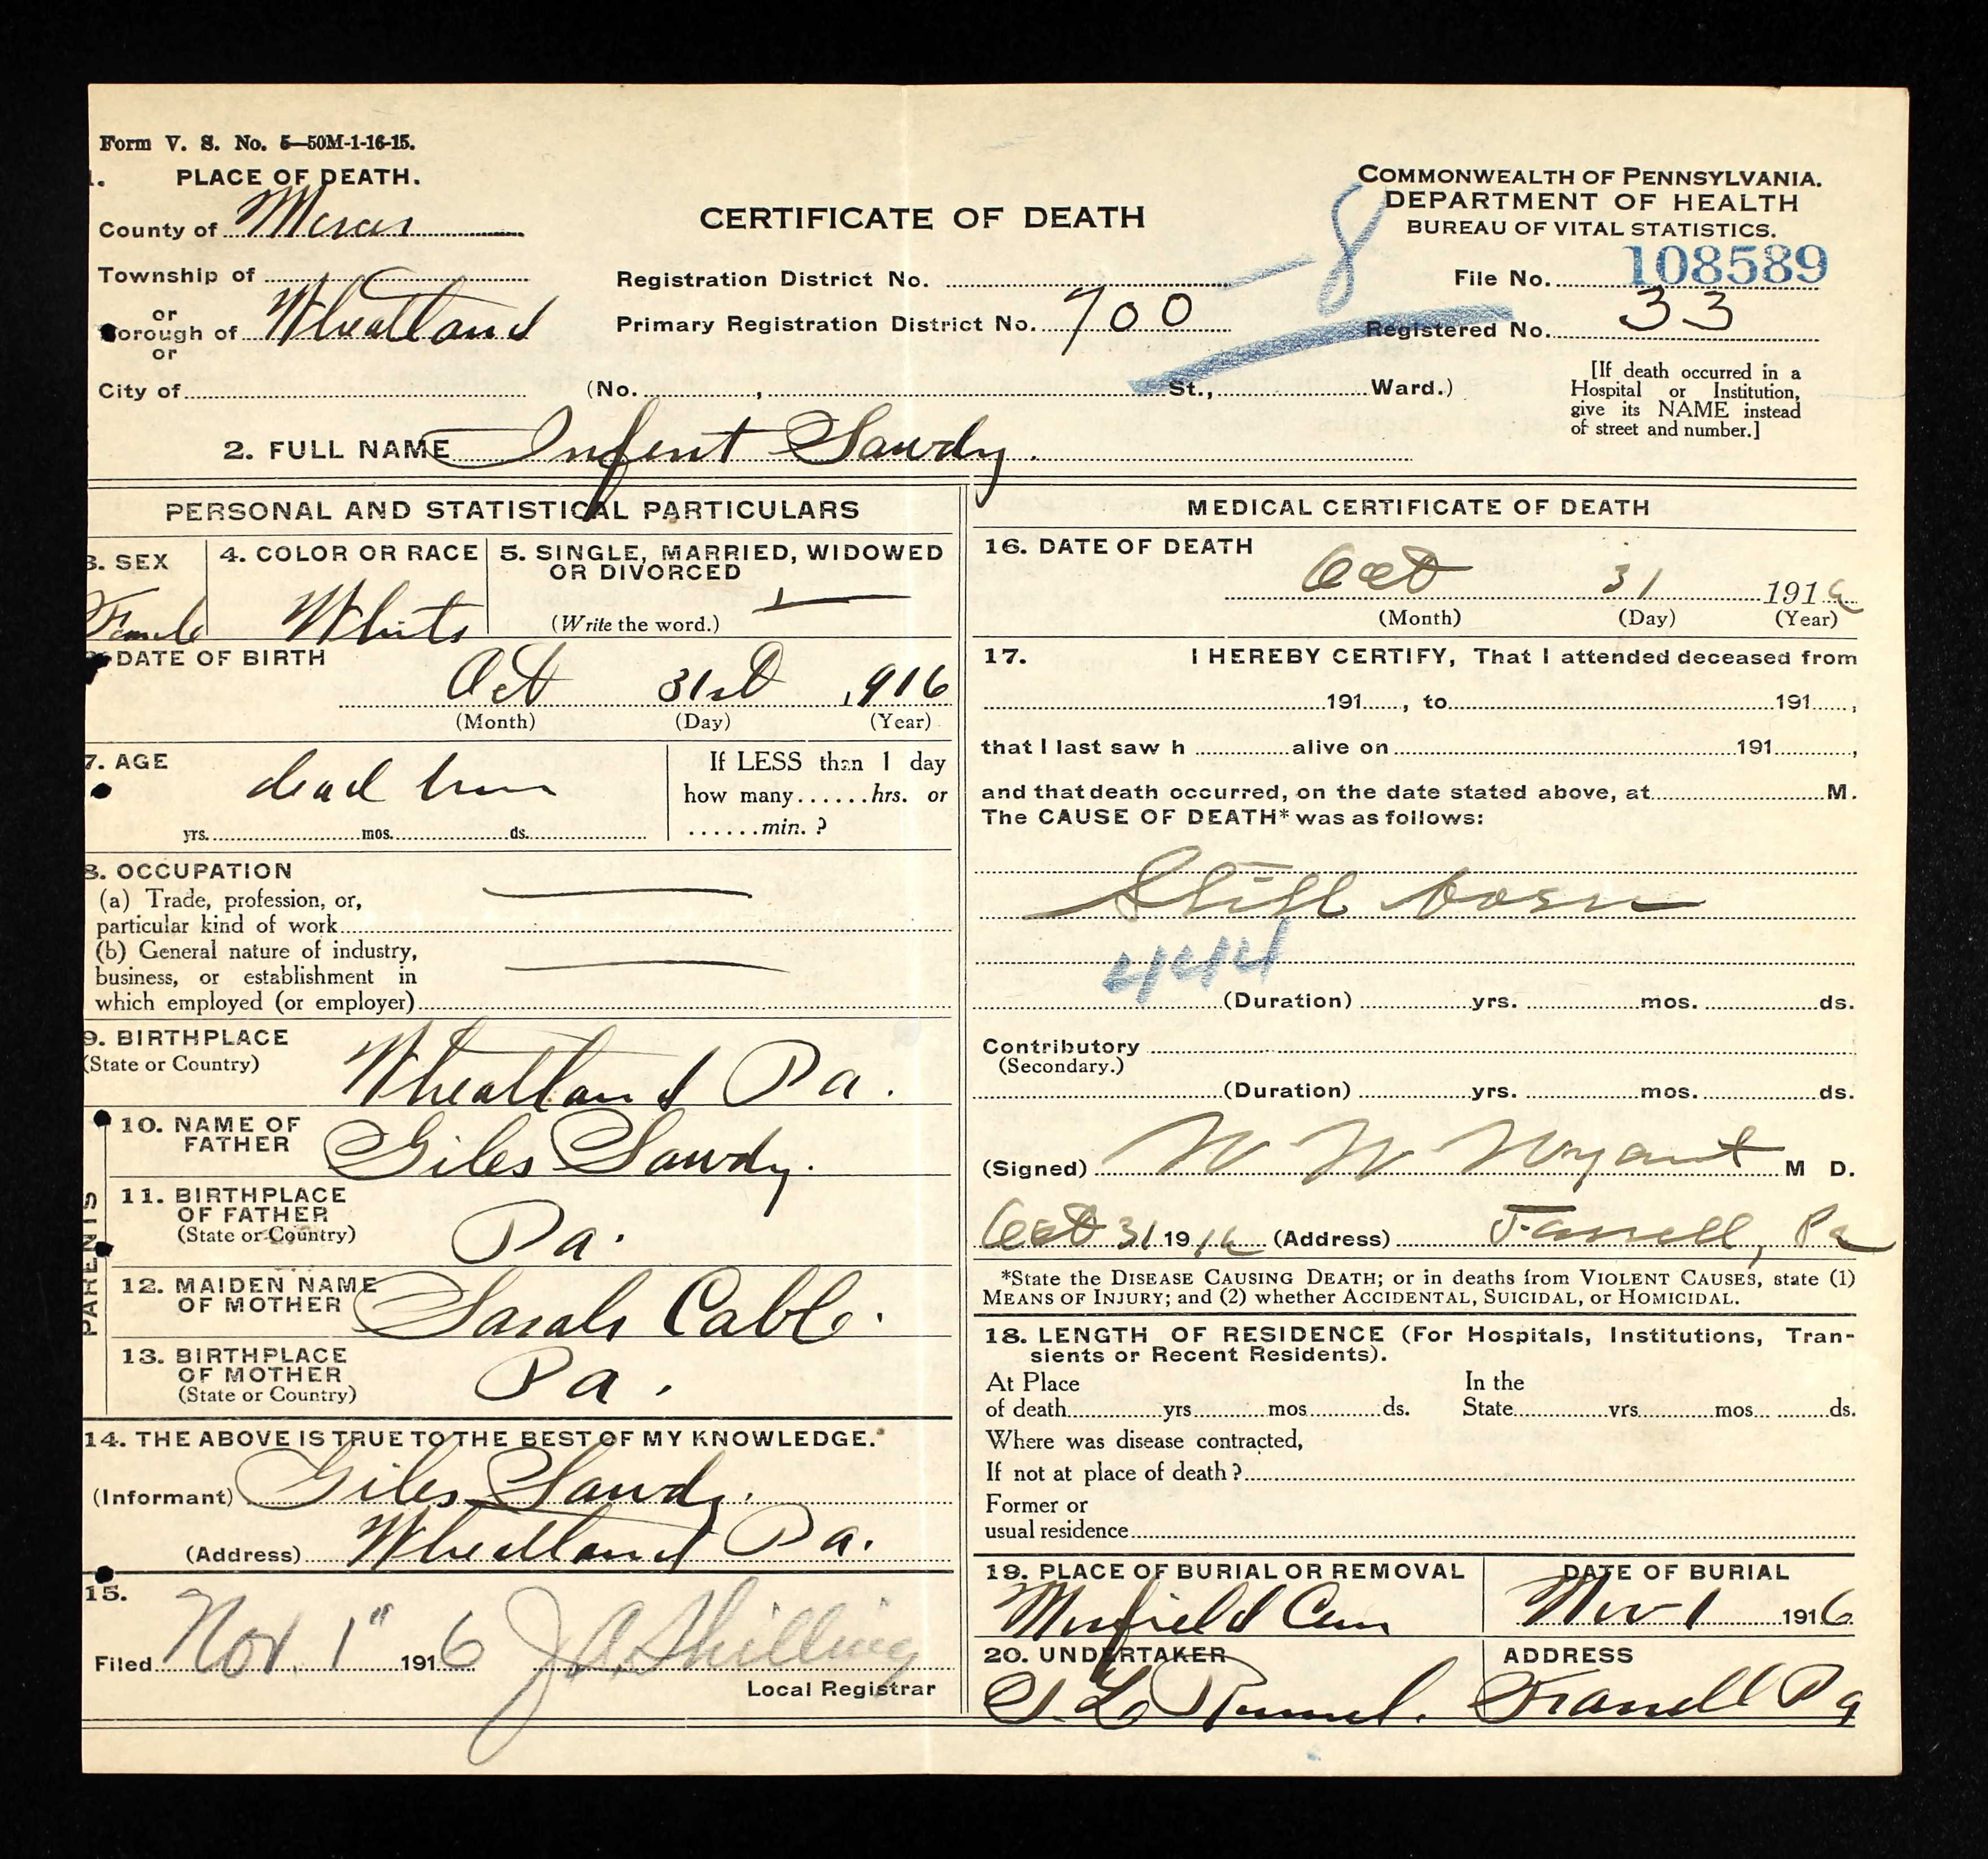 Form V. S. No. 5—50M-1-16-15.
1. PLACE OF DEATH.
County of Mercer
Township of
or
Borough of Wheatland
or
City of
CERTIFICATE OF DEATH
Registration District No.
Primary Registration District No. 700
(No. , St., Ward.)
COMMONWEALTH OF PENNSYLVANIA.
DEPARTMENT OF HEALTH
BUREAU OF VITAL STATISTICS.
-8
File No. 108589
Registered No. 33
[If death occurred in a
Hospital or Institution,
give its NAME instead
of street and number.]
2. FULL NAME Infent Sawdy.
PERSONAL AND STATISTICAL PARTICULARS
3. SEX
Female
4. COLOR OR RACE
White
5. SINGLE, MARRIED, WIDOWED
OR DIVORCED
(Write the word.)
DATE OF BIRTH
Oct 31st 1916
(Month) (Day) (Year)
7. AGE
dead born
yrs. mos. ds.
If LESS than 1 day
how many......hrs. or
......min. ?
8. OCCUPATION
(a) Trade, profession, or,
particular kind of work
(b) General nature of industry,
business, or establishment in
which employed (or employer)
9. BIRTHPLACE
(State or Country)
Wheatland Pa.
PARENTS
10. NAME OF
FATHER
Giles Sawdy.
11. BIRTHPLACE
OF FATHER
(State or Country)
Pa.
12. MAIDEN NAME
OF MOTHER
Sarah Cable.
13. BIRTHPLACE
OF MOTHER
(State or Country)
Pa.
14. THE ABOVE IS TRUE TO THE BEST OF MY KNOWLEDGE.
(Informant) Giles Sawdy.
(Address) Wheatland Pa.
15.
Filed Nov. 1" 1916 J A Shilling
Local Registrar
MEDICAL CERTIFICATE OF DEATH
16. DATE OF DEATH
Oct 31 1916
(Month) (Day) (Year)
17. I HEREBY CERTIFY, That I attended deceased from
191 , to 191 ,
that I last saw h alive on 191 ,
and that death occurred, on the date stated above, at M.
The CAUSE OF DEATH* was as follows:
Still born
444
(Duration) yrs. mos. ds.
Contributory
(Secondary.)
(Duration) yrs. mos. ds.
(Signed) W W Wyant M D.
Oct 31 1916 (Address) Farrell, Pa
*State the DISEASE CAUSING DEATH; or in deaths from VIOLENT CAUSES, state (1)
MEANS OF INJURY; and (2) whether ACCIDENTAL, SUICIDAL, or HOMICIDAL.
18. LENGTH OF RESIDENCE (For Hospitals, Institutions, Tran-
sients or Recent Residents).
At Place
of death yrs mos ds.
In the
State yrs mos ds.
Where was disease contracted,
If not at place of death ?
Former or
usual residence
19. PLACE OF BURIAL OR REMOVAL
Cem
DATE OF BURIAL
Nov 1 1916
20. UNDERTAKER
ADDRESS
Farrell Pa